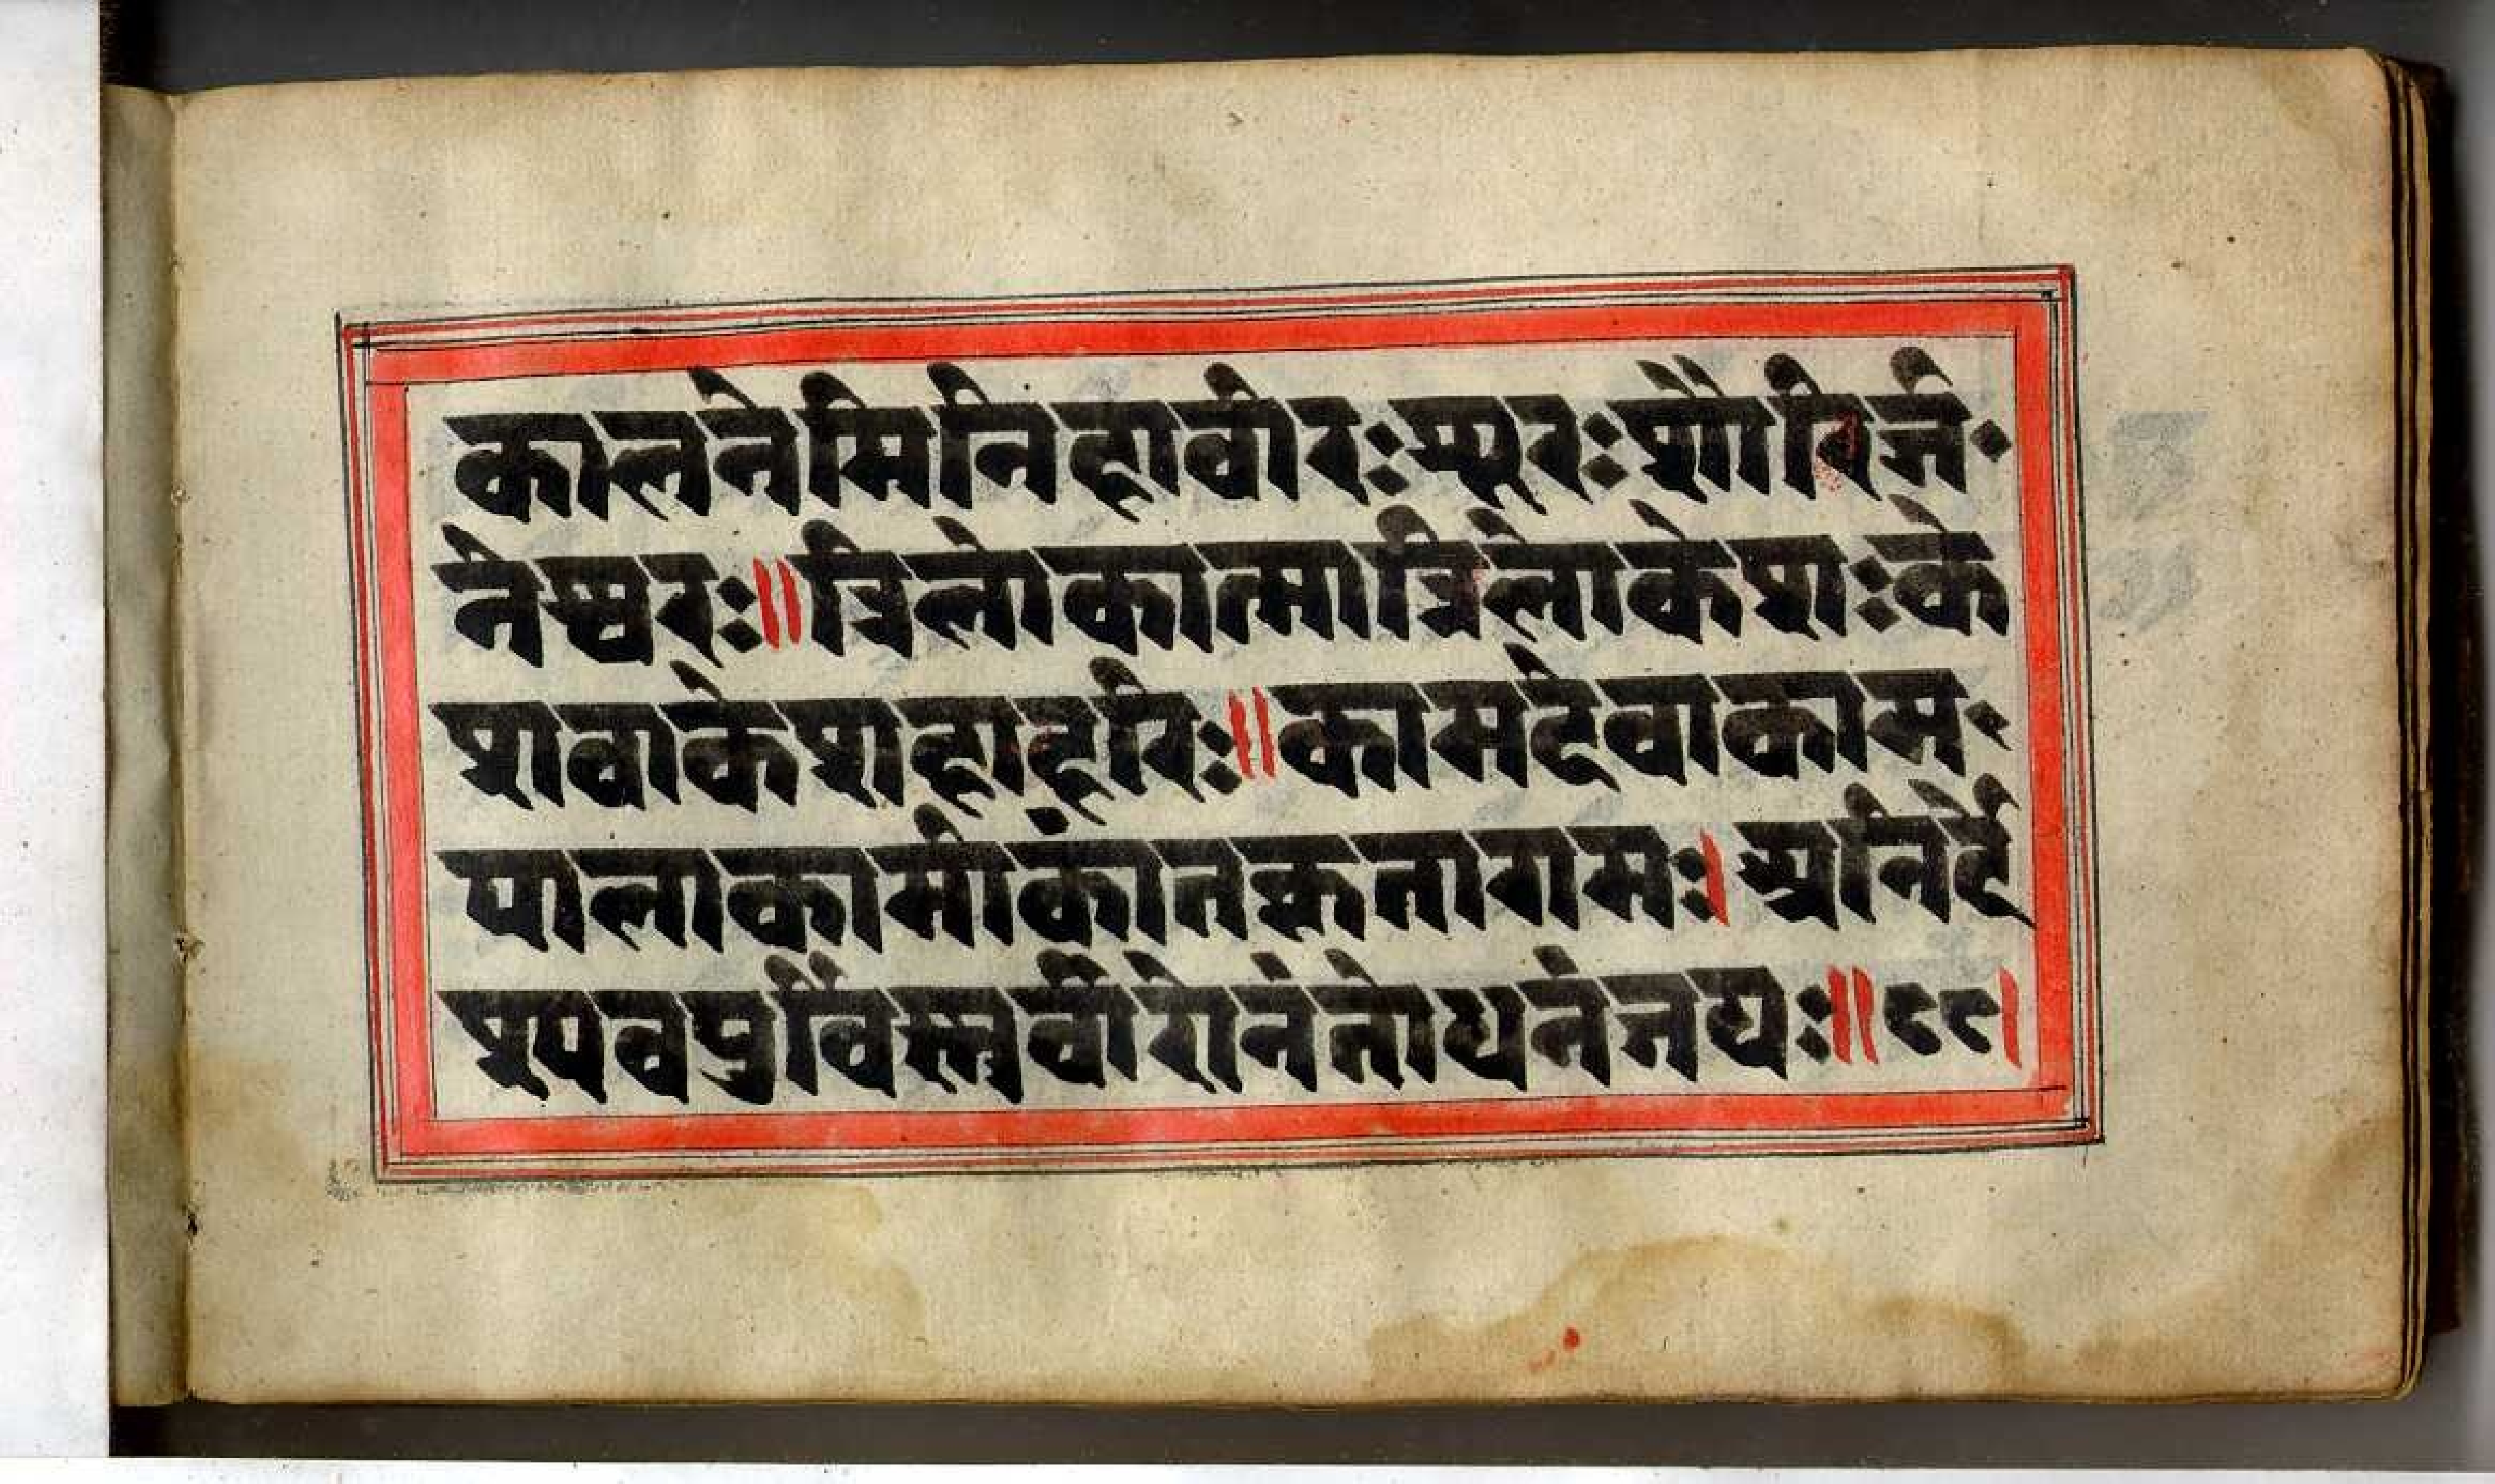 कालनेमिनिहावीरःशूरःशौरिर्जने·
नेश्वरः॥त्रिलोकात्मात्रिलोकेशःके
शवाकेशहाहरिः॥कामदेवाकाम·
पालाकामीकांतकृतागमः।अनिर्दे
श्यवपुर्विस्नुर्वीरोनंतोधनंजयः॥८९।